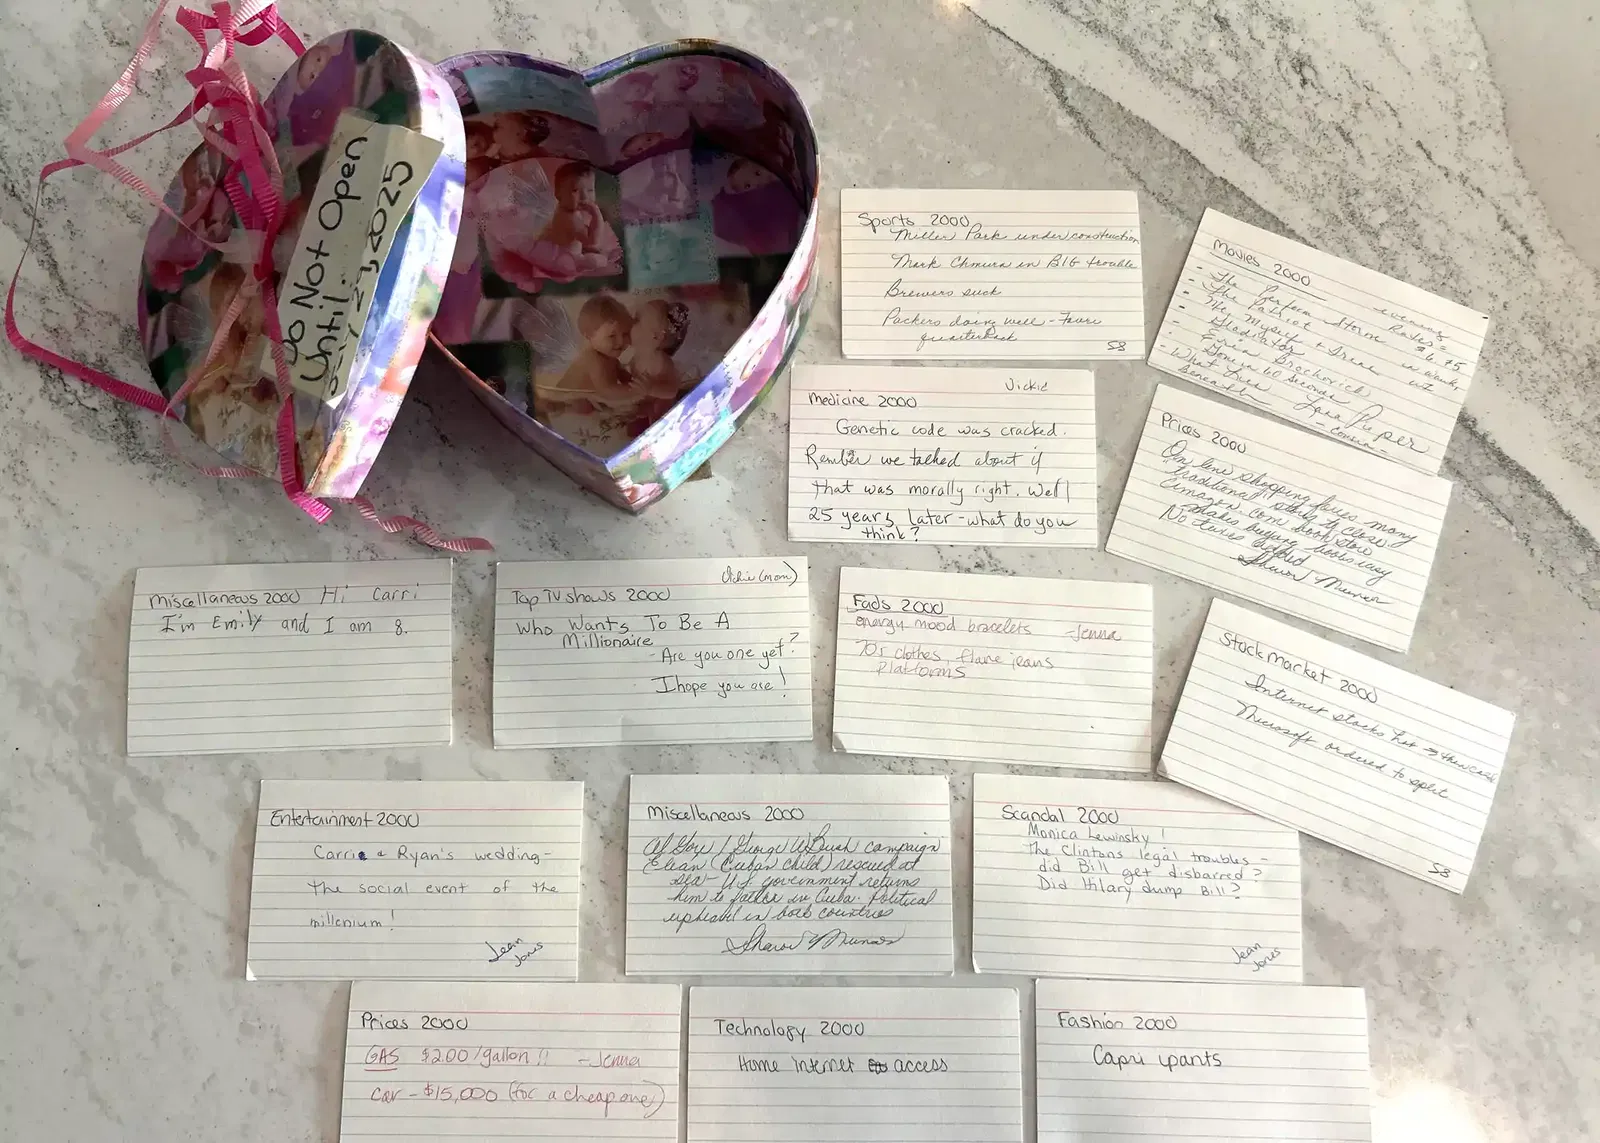 Do Not Open
Until:
23, 2025
Sports 2000
Miller Park under construction
Mark Chmura in BIG trouble
Brewers suck
Packers doing well - Favre
quarterback
SB
Movies 2000
- The Perfect Storm
- The Patriot
- The Myself + Irene
- Gladiator
- Erin Brockovich
- Gone in 60 Seconds
- What Lies
Beneath
evening
Rates =
$6.75
in Wauke
WI
Lana Pieper
- cousin -
Vickie
Medicine 2000
Genetic code was cracked.
Rember we talked about if
that was morally right. Well
25 years later - what do you
think?
Prices 2000
On line shopping forces many
"traditional" stores to close
Amazon.com book store
makes buying books easy
No taxes added
Sharon Munson
Miscellaneous 2000 Hi Carri
I'm Emily and I am 8.
Vickie (mom)
Top TV shows 2000
Who Wants To Be A
Millionaire
- Are you one yet?
I hope you are!
Fads 2000
energy mood bracelets - Jenna
70s clothes, flare jeans
Platforms
Stock Market 2000
Internet stocks hot → then cold
Microsoft ordered to split
SB
Entertainment 2000
Carrie & Ryan's wedding -
the social event of the
millenium!
Jean
Jones
Miscellaneous 2000
Al Gore / George W Bush campaign
Elean (Cuban child) rescued at
sea - U.S. government returns
him to father in Cuba. Political
upheavel in both countries
Sharon Munson
Scandal 2000
Monica Lewinsky!
The Clintons legal troubles -
did Bill get disbarred?
Did Hilary dump Bill?
Jean
Jones
Prices 2000
GAS $2.00/gallon!! - Jenna
car - $15,000 (for a cheap one)
Technology 2000
Home internet access
Fashion 2000
Capri pants